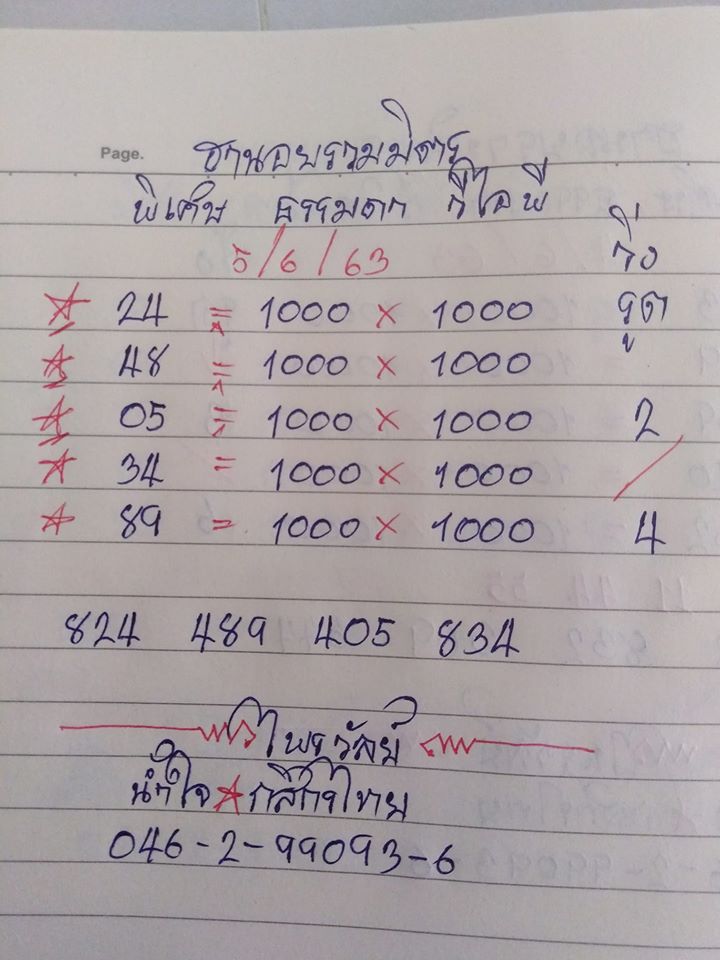 Page.
ฮานอยรวมมิตร
พิเศษ ธรรมดา วีไอพี
5/6/63
วิ่ง
รูด
☆ 24 = 1000 × 1000
☆ 48 = 1000 × 1000
☆ 05 = 1000 × 1000
☆ 34 = 1000 × 1000
☆ 89 = 1000 × 1000
2
/
4
824 489 405 834
ไพรวัลย์
น้ำใจ ☆ กสิกรไทย
046-2-99093-6